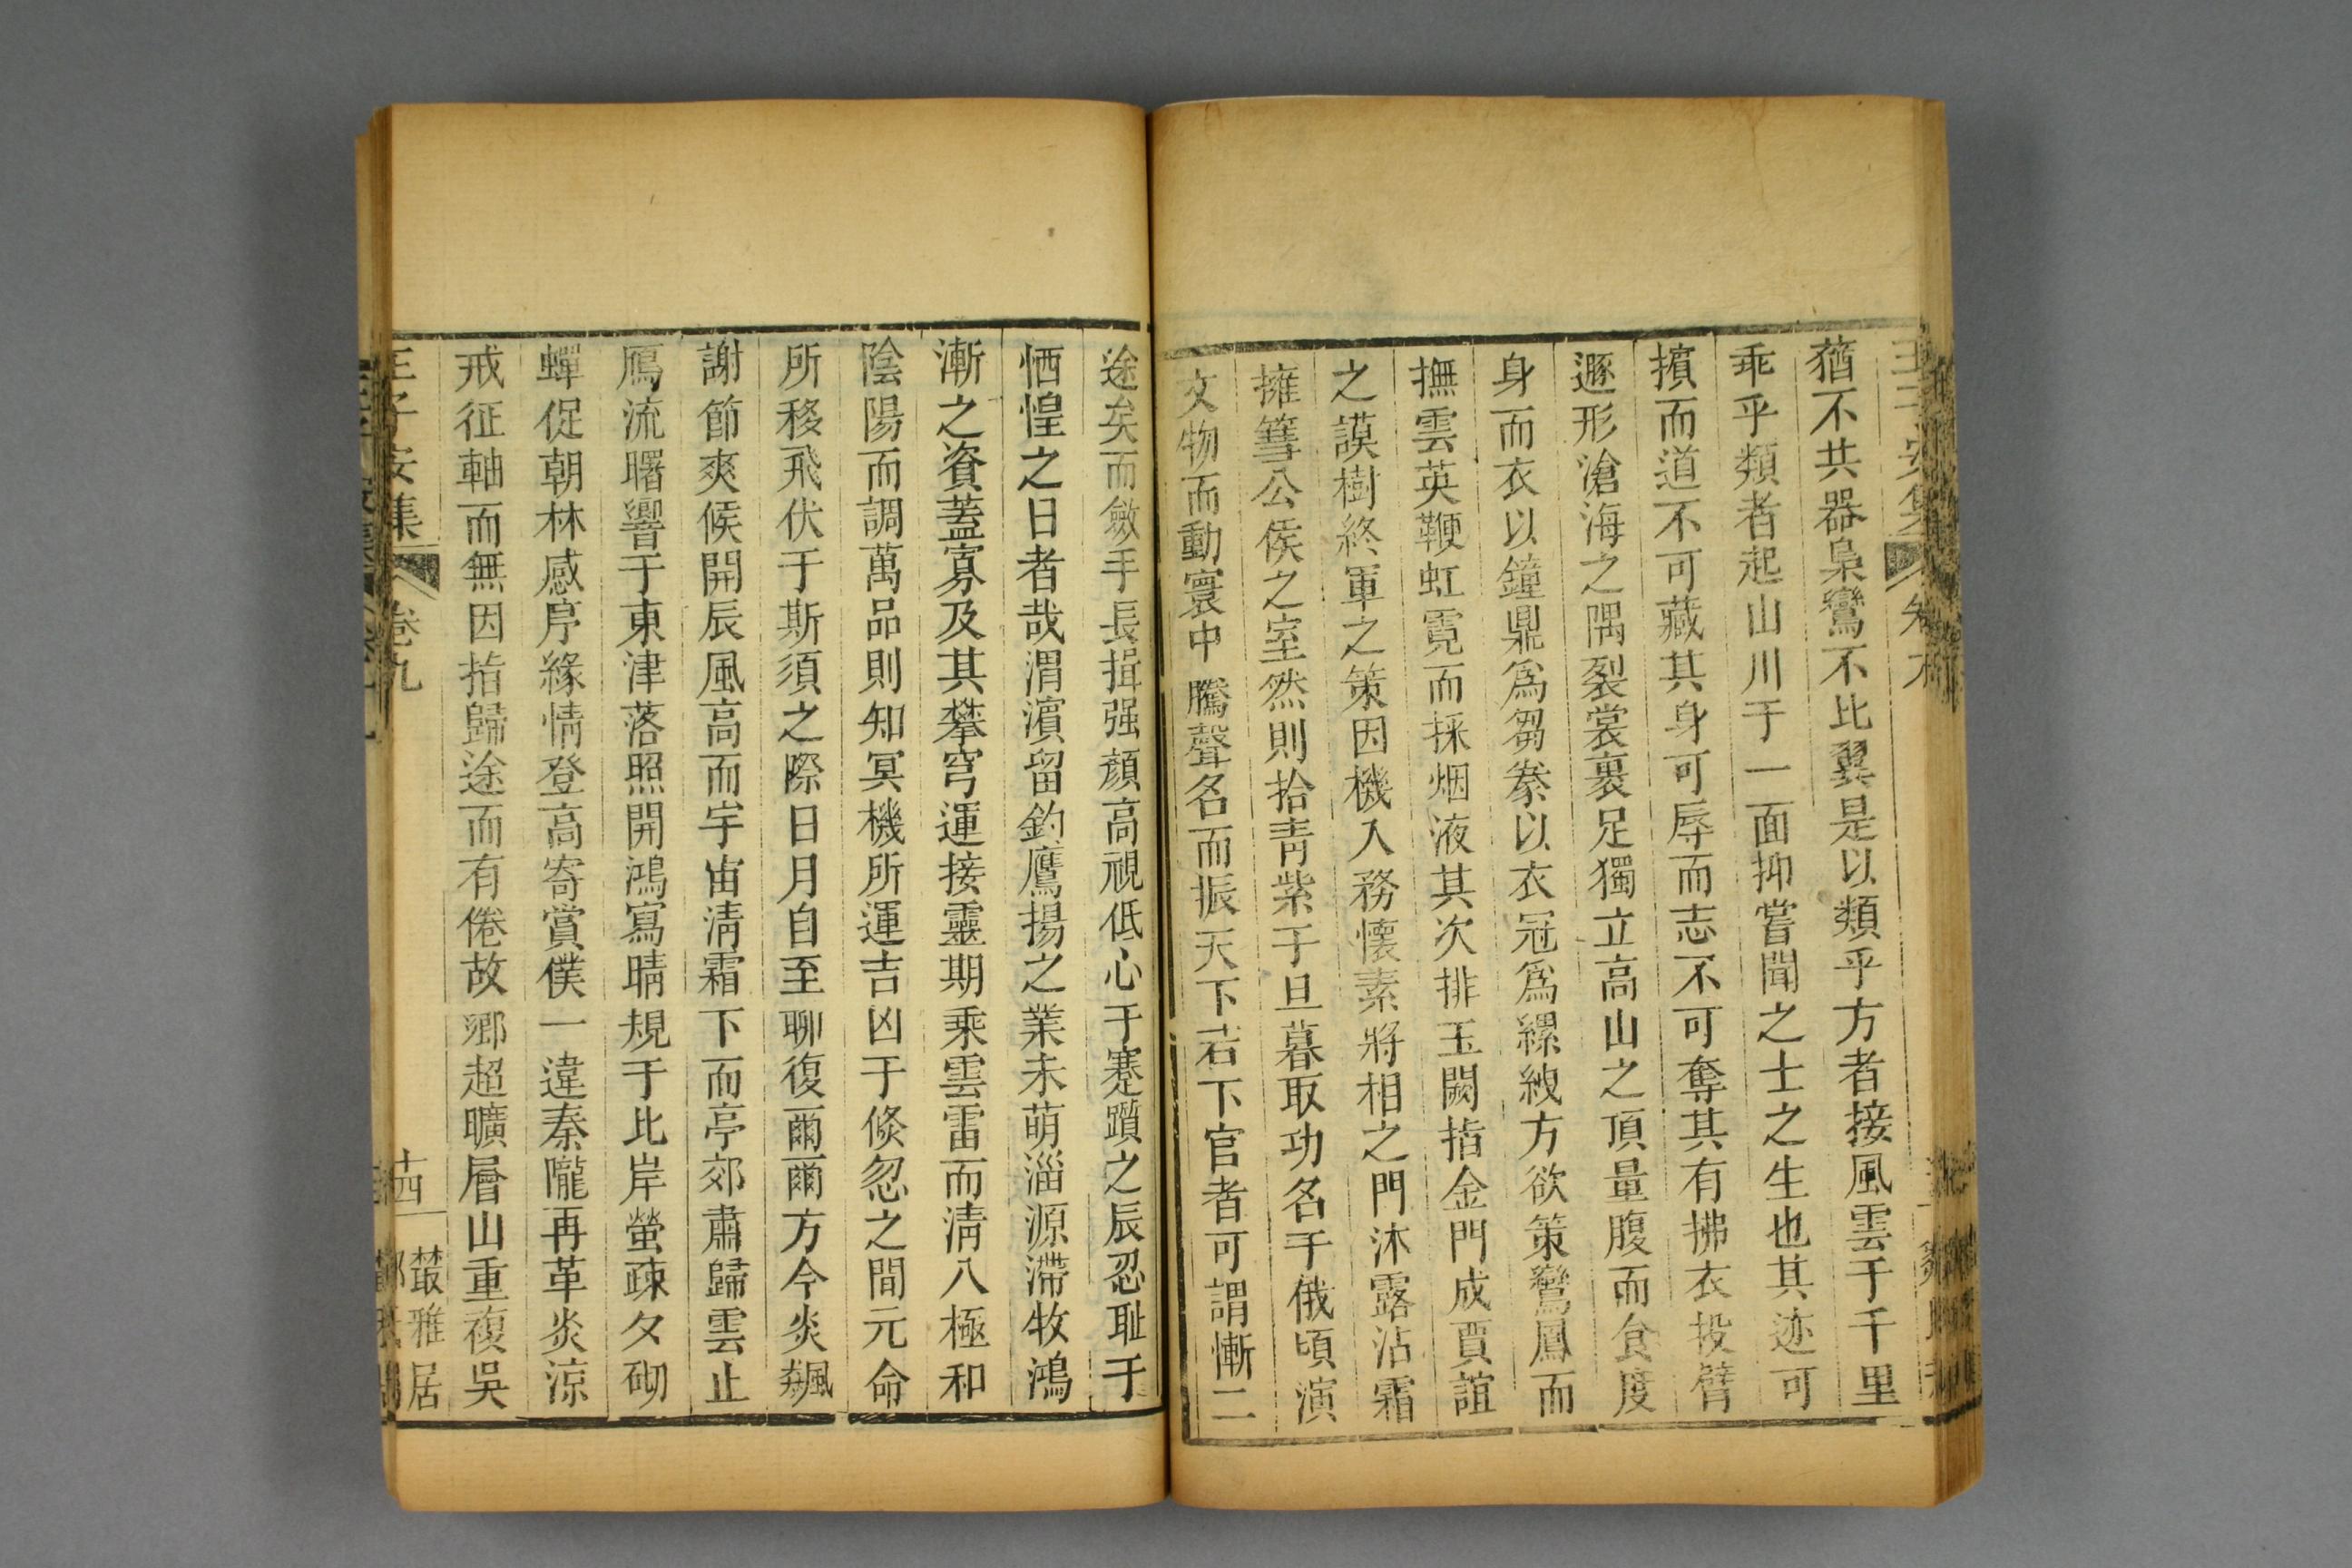 王子安集
卷九
蕕不共器梟鸞不比翼是以類乎方者接風雲于千里
乖乎類者起山川于一面抑嘗聞之士之生也其迹可
擯而道不可藏其身可辱而志不可奪其有拂衣投臂
遯形滄海之隅裂裳裹足獨立高山之頂量腹而食度
身而衣以鐘鼎爲芻豢以衣冠爲縲紲方欲策鸞鳳而
撫雲英鞭虹霓而採烟液其次排玉闕指金門成賈誼
之謨樹終軍之策因機入務懷素將相之門沐露沾霜
擁篲公侯之室然則拾青紫于旦暮取功名于俄頃演
文物而動寰中騰聲名而振天下若下官者可謂慚二
途矣而斂手長揖强顏高視低心于蹇躓之辰忍耻于
恓惶之日者哉渭濱留釣鷹揚之業未萌淄源滯牧鴻
漸之資蓋寡及其攀穹運接靈期乘雲雷而淸八極和
陰陽而調萬品則知冥機所運吉凶于倏忽之間元命
所移飛伏于斯須之際日月自至聊復爾爾方今炎飈
謝節爽候開辰風高而宇宙淸霜下而亭郊肅歸雲止
鴈流曙響于東津落照開鴻寫晴規于北岸螢疎夕砌
蟬促朝林感序緣情登高寄賞僕一違秦隴再革炎涼
戒征軸而無因指歸途而有倦故鄉超曠層山重複吳
王子安集
卷九
十四
叢雅居